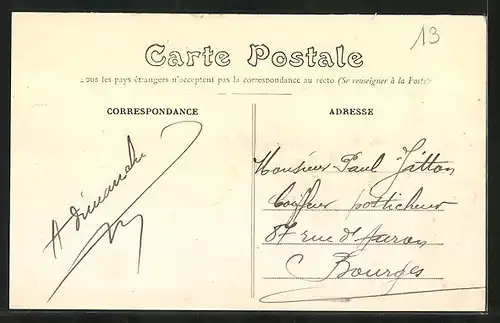 13
Carte Postale
Tous les pays étrangers n'acceptent pas la correspondance au recto (Se renseigner à la Poste)
CORRESPONDANCE
ADRESSE
A dimanche
Monsieur Paul
Coiffeur posticheur
87 rue d'Auron
Bourges